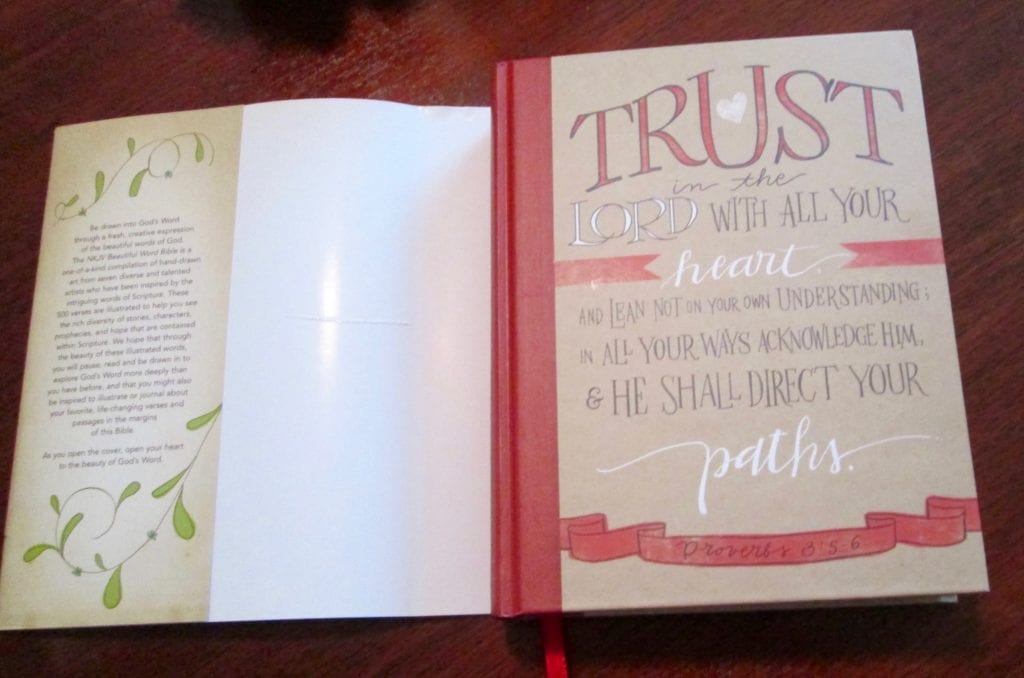 Be drawn into God's Word
through a fresh, creative expression
of the beautiful words of God.
The NKJV Beautiful Word Bible is a
one-of-a-kind compilation of hand-drawn
art from seven diverse and talented
artists who have been inspired by the
intriguing words of Scripture. These
500 verses are illustrated to help you see
the rich diversity of stories, characters,
prophecies, and hope that are contained
within Scripture. We hope that through
the beauty of these illustrated words,
you will pause, read and be drawn in to
explore God's Word more deeply than
you have before, and that you might also
be inspired to illustrate or journal about
your favorite, life-changing verses and
passages in the margins
of this Bible.
As you open the cover, open your heart
to the beauty of God's Word.
TRUST
in the
LORD WITH ALL YOUR
heart,
AND LEAN NOT ON YOUR OWN UNDERSTANDING;
IN ALL YOUR WAYS ACKNOWLEDGE HIM,
& HE SHALL DIRECT YOUR
paths.
Proverbs 3:5-6